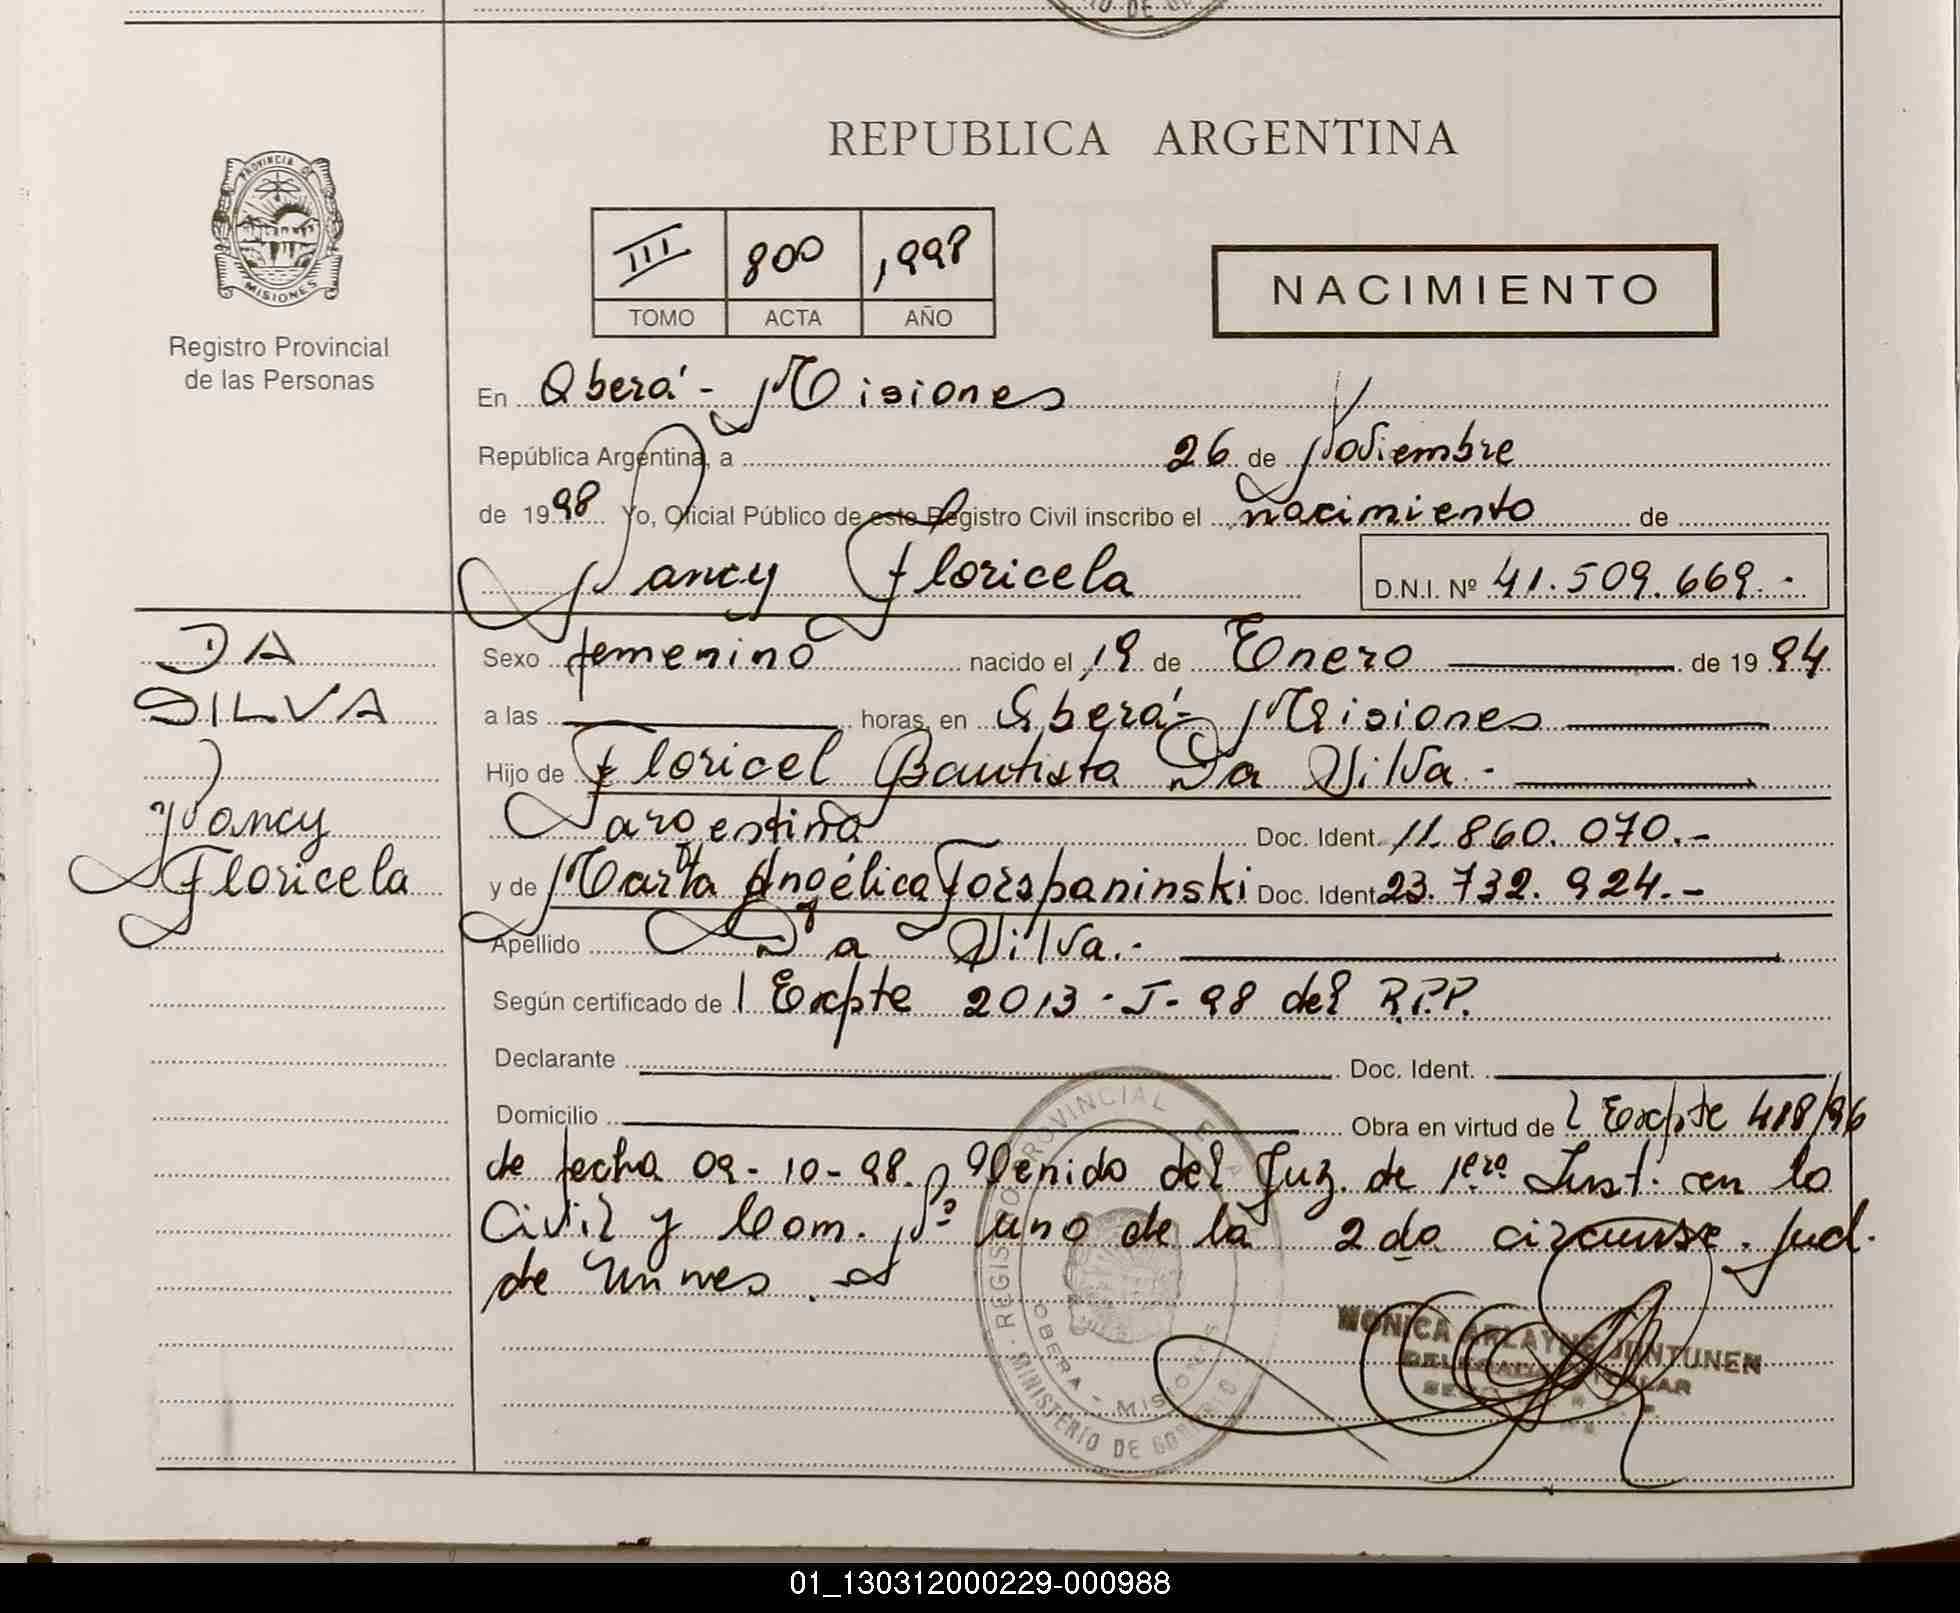 REPUBLICA ARGENTINA
PROVINCIA DE
MISIONES
Registro Provincial
de las Personas
III 800 1,998
TOMO ACTA AÑO
NACIMIENTO
En Oberá - Misiones
República Argentina, a 26 de Noviembre
de 1998 Yo, Oficial Público de este Registro Civil inscribo el nacimiento de
Nancy Floricela D.N.I. Nº 41.509.669.-
DA
SILVA
Nancy
Floricela
Sexo femenino nacido el 19 de Enero de 1994
a las horas, en Oberá - Misiones
Hijo de Floricel Bautista Da Silva.-
argentina Doc. Ident. 11.860.070.-
y de Marta Angélica Forspaninski Doc. Ident. 23.732.924.-
Apellido Da Silva.-
Según certificado de l Expte 2013-J-98 del R.P.P.
Declarante Doc. Ident.
Domicilio Obra en virtud de l Expte 418/96
de fecha 09-10-98. Venido del Juz. de 1era Inst. en lo
Civil y Com. Nº uno de la 2da circunsc. Jud.
de Mnes.
REGISTRO PROVINCIAL
OBERA - MISIONES
MINISTERIO DE GOBIERNO
MONICA ARLAYNE JUNTUNEN
DELEGADA TITULAR
01_130312000229-000988